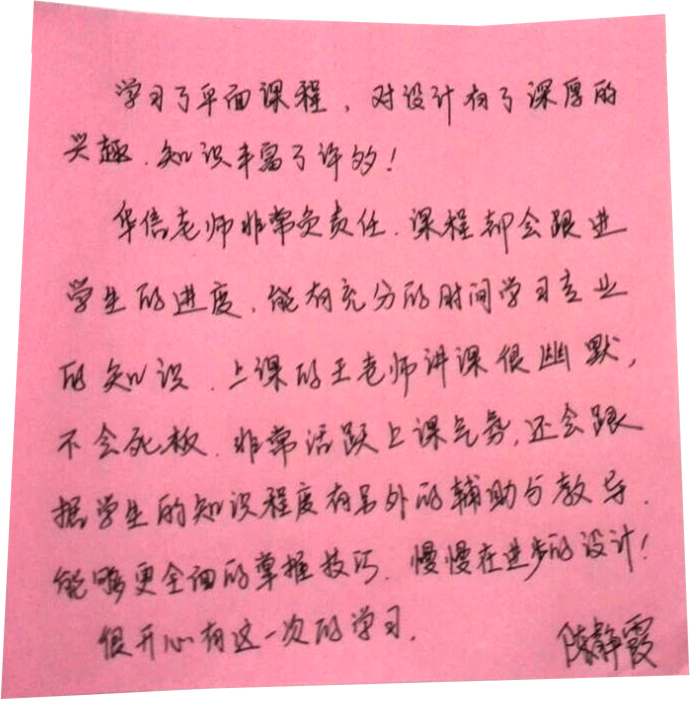 学习了平面课程，对设计有了深厚的
兴趣．知识丰富了许多！
华信老师非常负责任．课程都会跟进
学生的进度．能有充分的时间学习专业
的知识．上课的王老师讲课很幽默，
不会死板．非常活跃上课气氛，还会跟
据学生的知识程度有另外的辅助与教导．
能够更全面的掌握技巧．慢慢在进步的设计！
很开心有这一次的学习．
陈静霞